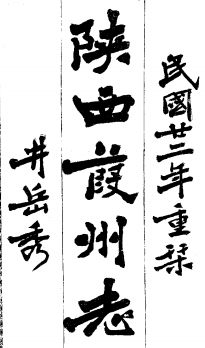 民國廿二年重栞
陝西葭州志
井岳秀